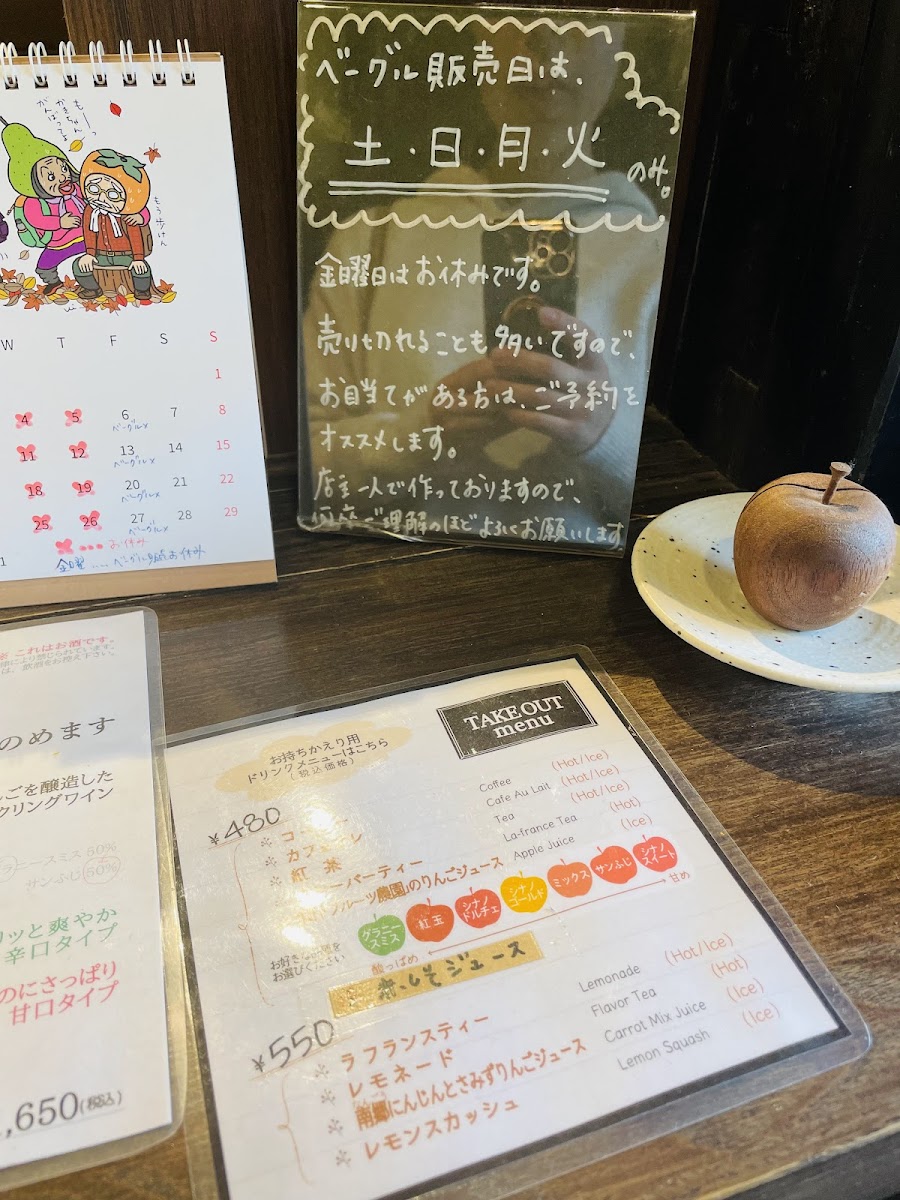 ベーグル販売日は、
土・日・月・火
のみ。
金曜日はお休みです。
売り切れることも多いですので、
お目当てがある方は、ご予約を
オススメします。
店主一人で作っておりますので、
何卒ご理解のほどよろしくお願いします
も〜っ
かきちゃん
がんばってよ
もう歩けん
W T F S S
1
4 5 6 7 8
ベーグル×
11 12 13 14 15
ベーグル×
18 19 20 21 22
ベーグル×
25 26 27 28 29
ベーグル×
・・・お休み
1
金曜・・・・ベーグル販売お休み
これはお酒です。
は、飲酒をお控え下さい。
のめます
ごを醸造した
クリングワイン
ニースミス 50%
サンふじ 50%
リッと爽やか
辛口タイプ
のにさっぱり
甘口タイプ
,650(税込)
TAKEOUT
menu
お持ちかえり用
ドリンクメニューはこちら
(税込価格)
¥480
Coffee (Hot/Ice)
Cafe Au Lait (Hot/Ice)
紅茶 Tea (Hot/Ice)
ーバーティー La-france Tea (Hot)
フルーツ農園」のりんごジュース Apple Juice (Ice)
グラニースミス
紅玉
シナノドルチェ
シナノゴールド
ミックス
サンふじ
シナノスイート
お選びください
酸っぱめ
甘め
ジュース
¥550
ラフランスティー
レモネード Lemonade (Hot/Ice)
Flavor Tea (Hot)
南郷にんじんとさみずりんごジュース Carrot Mix Juice (Ice)
レモンスカッシュ Lemon Squash (Ice)